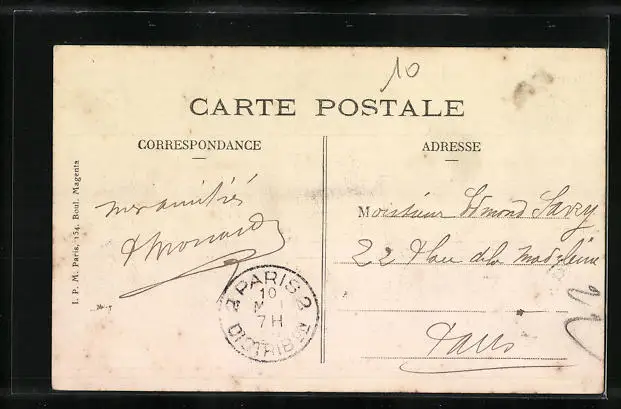 10
CARTE POSTALE
CORRESPONDANCE
ADRESSE
I. P. M. Paris, 154, Boul. Magenta
mes amitiés
Monsieur Edmond Savry
22 Place de la Madeleine
Paris
2 PARIS 2
10
7H
DISTRIBON